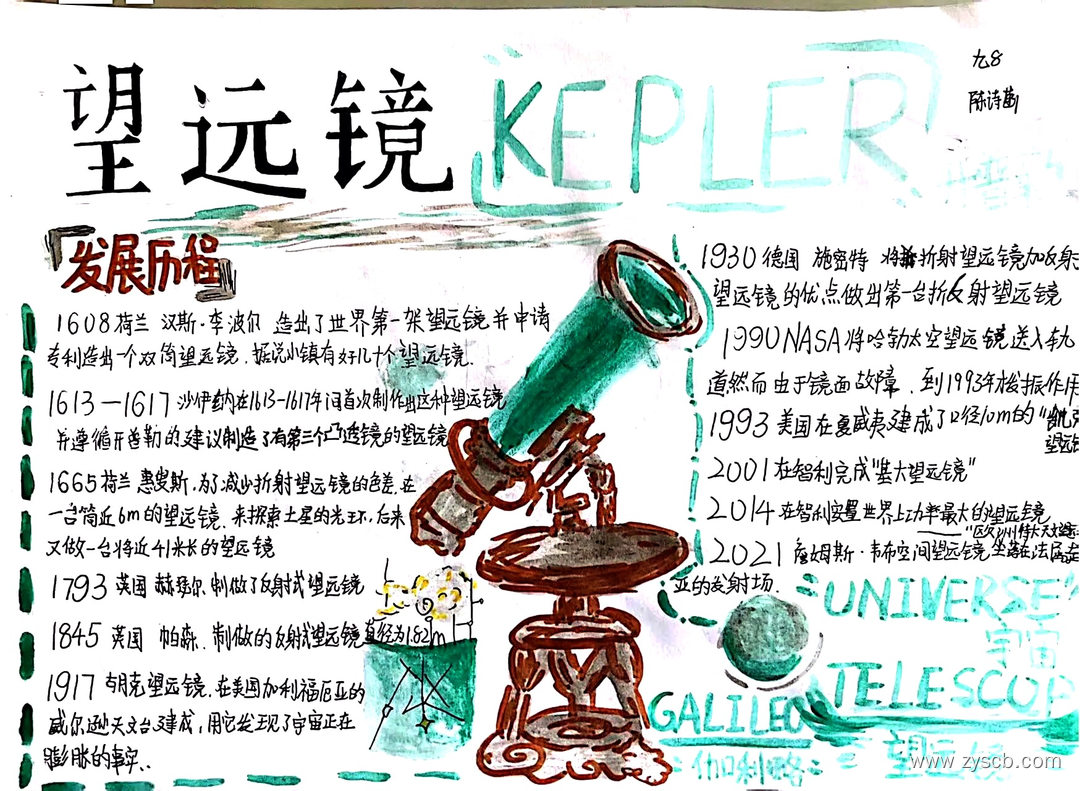 望远镜 KEPLER
九8
陈诗
发展历程
1608荷兰 汉斯·李波尔 造出了世界第一架望远镜并申请
专利造出一个双筒望远镜.据说小镇有好几十个望远镜.
1613—1617 沙伊纳在1613-1617年间首次制作出这种望远镜
并遵循开普勒的建议制造了有第三个凸透镜的望远镜
1665荷兰 惠更斯.为了减少折射望远镜的色差.在
一台筒近6m的望远镜.来探索土星的光环.后来
又做一台将近41米长的望远镜
1793 英国 赫瑟尔.制做了反射式望远镜
1845 英国 帕森.制做的反射式望远镜直径为1.82m
1917 胡克望远镜.在美国加利福尼亚的
威尔逊天文台建成,用它发现了宇宙正在
膨胀的事实.
1930德国 施密特 将折射望远镜加反射
望远镜的优点做出第一台折反射望远镜
1990NASA将哈勃太空望远镜送入轨
道然而由于镜面故障.到1993年 作用
1993美国在夏威夷建成了口径10m的"凯克
望远镜
2001在智利完成"甚大望远镜"
2014在智利安置世界上功率最大的望远镜
"欧洲特大天文
2021 詹姆斯·韦布空间望远镜坐落在法属圭
亚的发射场.
"UNIVERSE"
宇宙
TELESCOP
望远镜
GALILEO
伽利略
www.zyscb.com